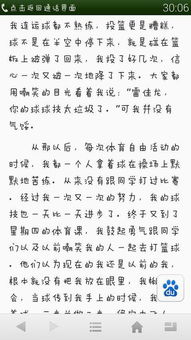 点击返回通话界面 30:06
我连运球都不熟练，投篮更是糟糕，
球不是在半空中停下来，就是碰在篮
板上被弹了回来，我投了好几次，信
心一次又一次地降了下来。大家都
用嘲笑的目光看着我说：“雷佳龙，
你的球技太垃圾了。”可我并没有
气馁。
从那以后，每次体育自由活动的
时候，我都一个人拿着球在操场上默
默地苦练。从来没有跟同学打过比赛
。经过我一次又一次的努力，我的球
技也一天比一天进步了。终于又到了
星期四的体育课，我鼓起勇气跟同学
们以及以前嘲笑我的人一起去打篮球
。他们以为现在的我还是以前的我，
根本就没有把我放在眼里，我
会，当球传到我手上的时候，我